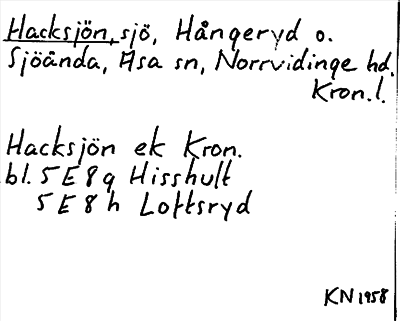 Hacksjön, sjö, Hångeryd o.
Sjöånda, Asa sn, Norrvidinge hd.
Kron.l.
Hacksjön ek Kron.
bl. 5E8g Hisshult
5E8h Lottsryd
KN 1958